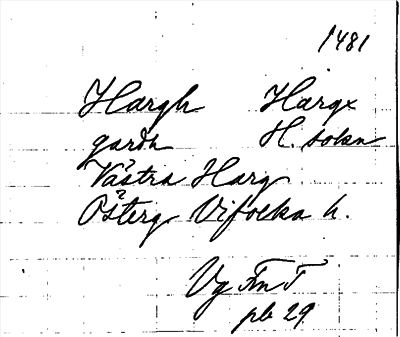 1481
Hargh Hargx
gardh H. sokn
Västra Harg
Österg Vifolka h.
Vg FmT
pb 29